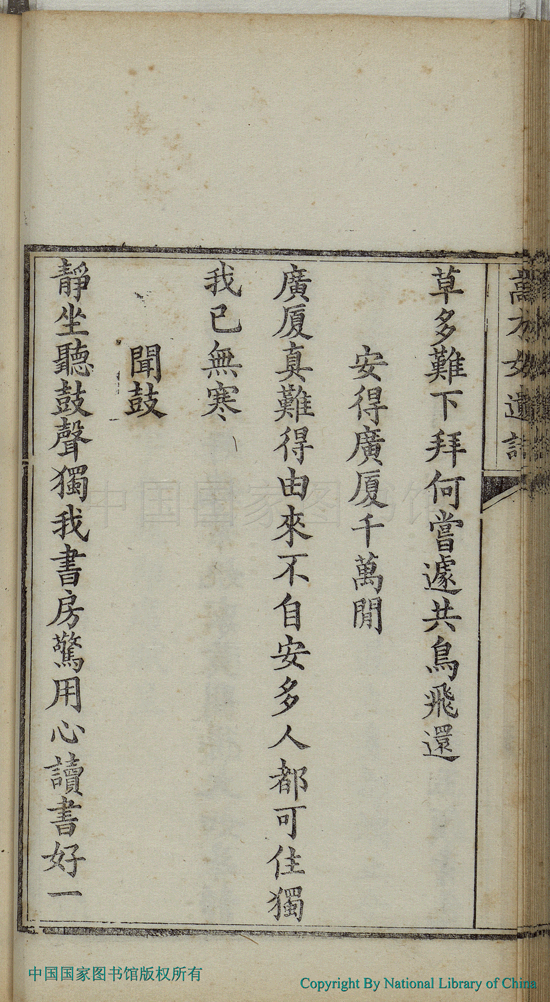 萬才女遺詩
草多難下拜何嘗遽共鳥飛還
安得廣厦千萬閒
廣厦真難得由來不自安多人都可住獨
我已無寒
聞鼓
靜坐聽鼓聲獨我書房驚用心讀書好一
中国国家图书馆
中国国家图书馆版权所有
Copyright By National Library of China